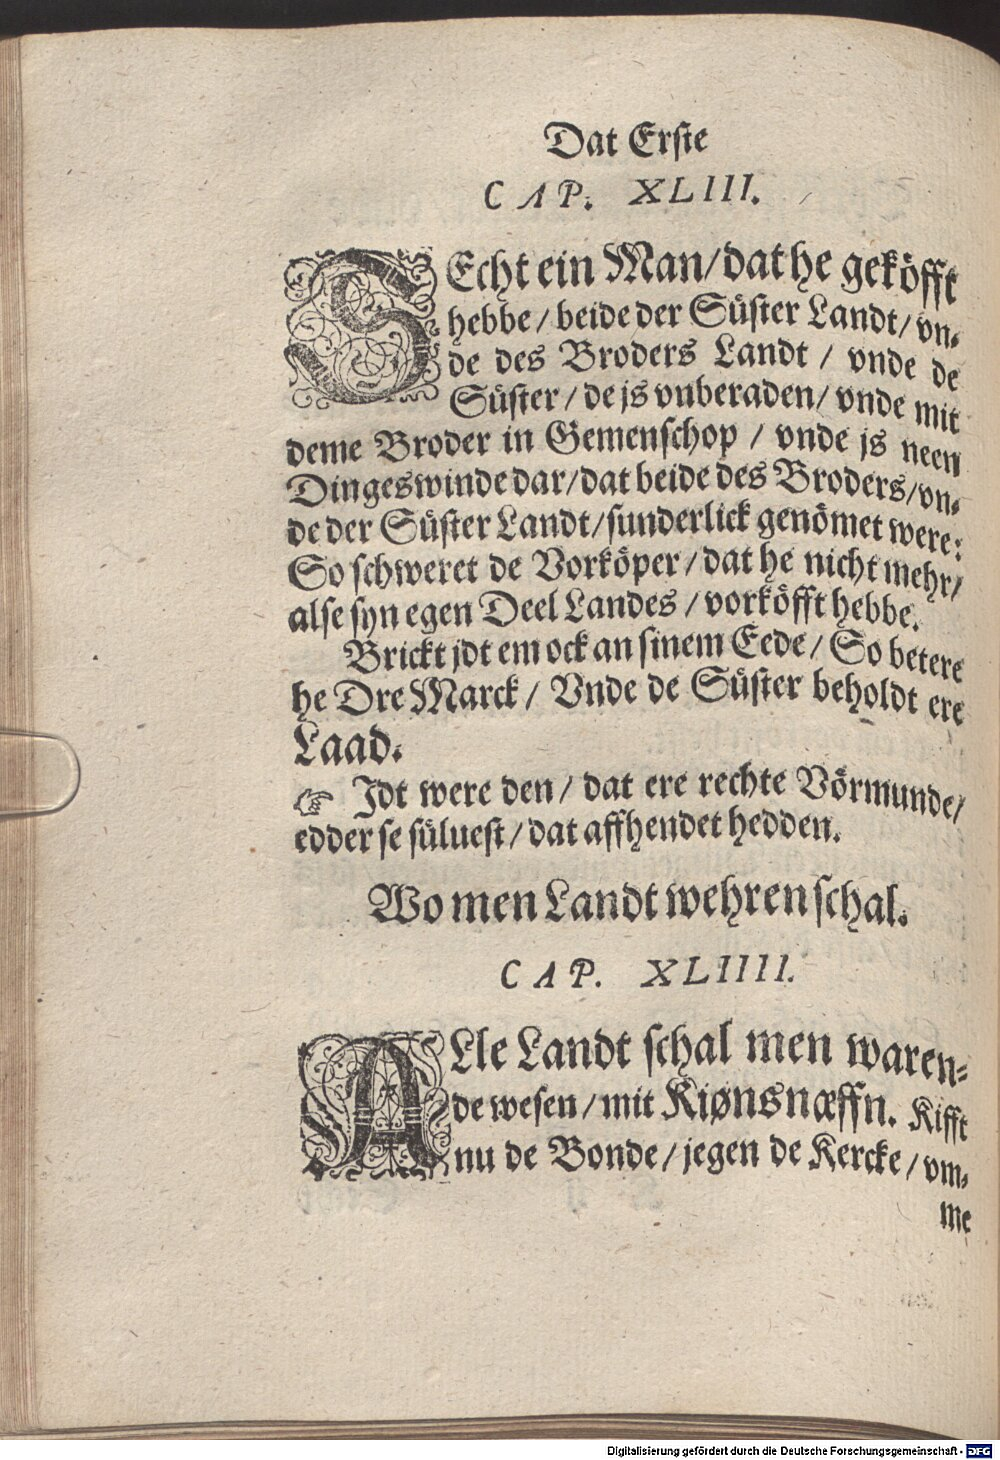 Dat Erste
CAP. XLIII.
SEcht ein Man/dat he geköfft
hebbe/beide der Süster Landt/vn⸗
de des Broders Landt / vnde de
Süster/de js vnberaden/vnde mit
deme Broder in Gemenschop / vnde js neen
Dingeswinde dar/dat beide des Broders/vn⸗
de der Süster Landt/sunderlick genömet were:
So schweret de Vorköper/dat he nicht mehr/
alse syn egen Deel Landes / vorköfft hebbe.
Brickt jdt em ock an sinem Eede/ So betere
he Dre Marck/ Vnde de Süster beholdt ere
Laad.
☞ Jdt were den/ dat ere rechte Vörmunde/
edder se süluest/dat affhendet hedden.
Wo men Landt wehren schal.
CAP. XLIIII.
ALle Landt schal men waren⸗
de wesen/mit Kiønsnæffn. Kifft
nu de Bonde/jegen de Kercke/vm⸗
me
Digitalisierung gefördert durch die Deutsche Forschungsgemeinschaft - DFG